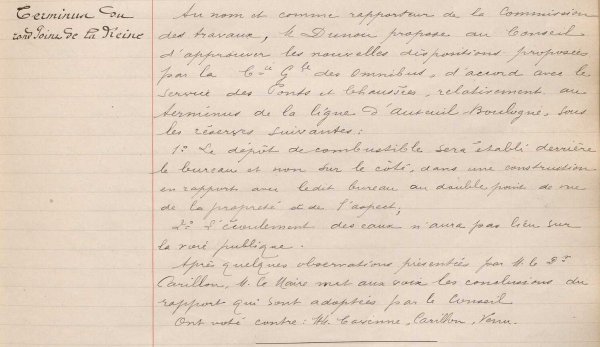 Terminus du
rond Point de la Reine
Au nom et comme rapporteur de la Commission
des travaux, M. Dunou propose au Conseil
d'approuver les nouvelles dispositions proposées
par la Cie Gle des Omnibus, d'accord avec le
service des Ponts et Chaussées, relativement au
terminus de la ligne d'Auteuil Boulogne, sous
les réserves suivantes :
1º Le dépôt de combustible sera établi derrière
le bureau et non sur le côté, dans une construction
en rapport avec ledit bureau au double point de vue
de la propreté et de l'aspect ;
2º L'écoulement des eaux n'aura pas lieu sur
la voie publique.
Après quelques observations présentées par M. le Dr
Carillon, M. le Maire met aux voix les conclusions du
rapport qui sont adoptées par le Conseil
Ont voté contre : MM. Carillon,